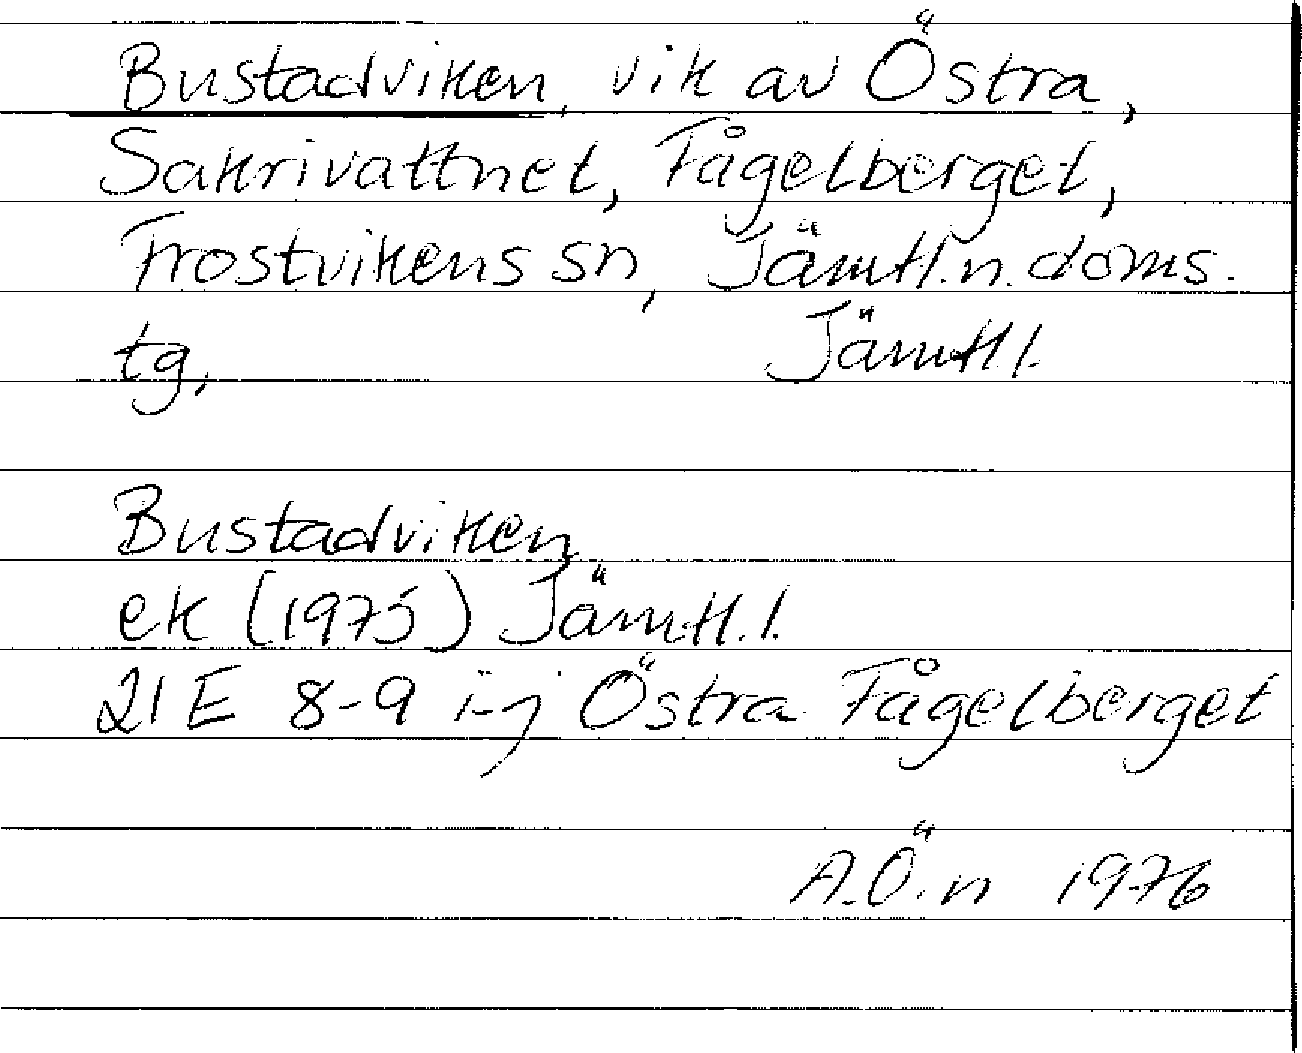 Bustadviken, vik av Östra,
Sakrivattnet, Fågelberget,
Frostvikens sn, Jämtl.n.doms.
tg, Jämtl l.
Bustadviken
ek (1975) Jämtl.l.
21E 8-9 i-j Östra Fågelberget
A.Ö.n 1976